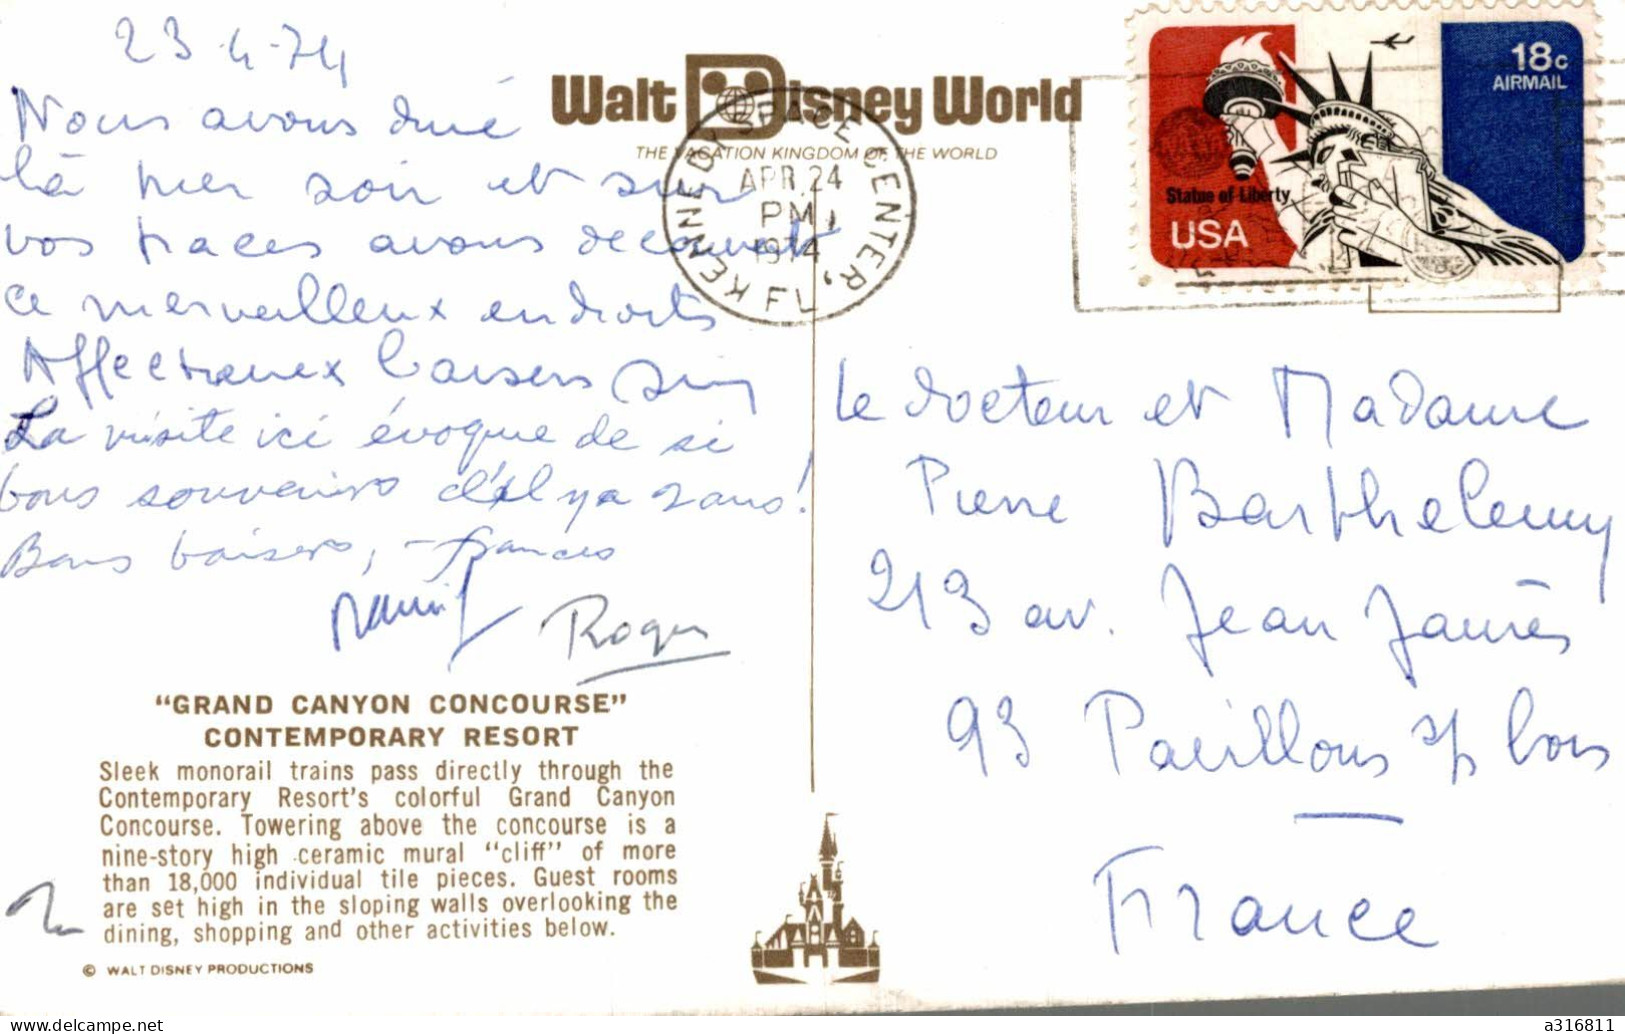 23-4-74
Nous avons diné
là hier soir et sur
vos traces avons découvert
ce merveilleux endroits
Affectueux baisers
La visite ici évoque de si
bons souvenirs d'il y a 2 ans!
Bons baisers, Frances
Roger
"GRAND CANYON CONCOURSE"
CONTEMPORARY RESORT
Sleek monorail trains pass directly through the
Contemporary Resort's colorful Grand Canyon
Concourse. Towering above the concourse is a
nine-story high ceramic mural "cliff" of more
than 18,000 individual tile pieces. Guest rooms
are set high in the sloping walls overlooking the
dining, shopping and other activities below.
© WALT DISNEY PRODUCTIONS
Walt Disney World
THE VACATION KINGDOM OF THE WORLD
KENNEDY SPACE CENTER, FL
APR 24
PM
1974
18c
AIRMAIL
Statue of Liberty
USA
Le docteur et Madame
Pierre Barthelemy
213 av. Jean Jaurès
93 Pavillons s/s bois
France
delcampe.net
a316811